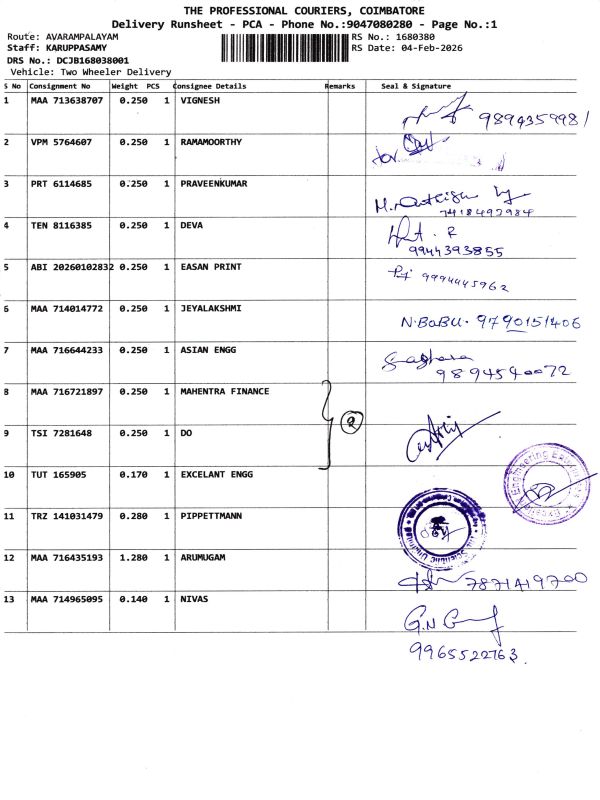 THE PROFESSIONAL COURIERS, COIMBATORE
Delivery Runsheet - PCA - Phone No.:9047080280 - Page No.:1
Route: AVARAMPALAYAM RS No.: 1680380
Staff: KARUPPASAMY RS Date: 04-Feb-2026
DRS No.: DCJB168038001
Vehicle: Two Wheeler Delivery
S No Consignment No Weight PCS Consignee Details Remarks Seal & Signature
1 MAA 713638707 0.250 1 VIGNESH 9894359981
2 VPM 5764607 0.250 1 RAMAMOORTHY for
3 PRT 6114685 0.250 1 PRAVEENKUMAR
7418492984
4 TEN 8116385 0.250 1 DEVA
9944393855
5 ABI 20260102832 0.250 1 EASAN PRINT 9994445962
6 MAA 714014772 0.250 1 JEYALAKSHMI N.BABU. 9790151406
7 MAA 716644233 0.250 1 ASIAN ENGG
9894540072
8 MAA 716721897 0.250 1 MAHENTRA FINANCE
2
9 TSI 7281648 0.250 1 DO
10 TUT 165905 0.170 1 EXCELANT ENGG Engineering
11 TRZ 141031479 0.280 1 PIPPETTMANN
12 MAA 716435193 1.280 1 ARUMUGAM 7871419700
13 MAA 714965095 0.140 1 NIVAS G.N
9965522763